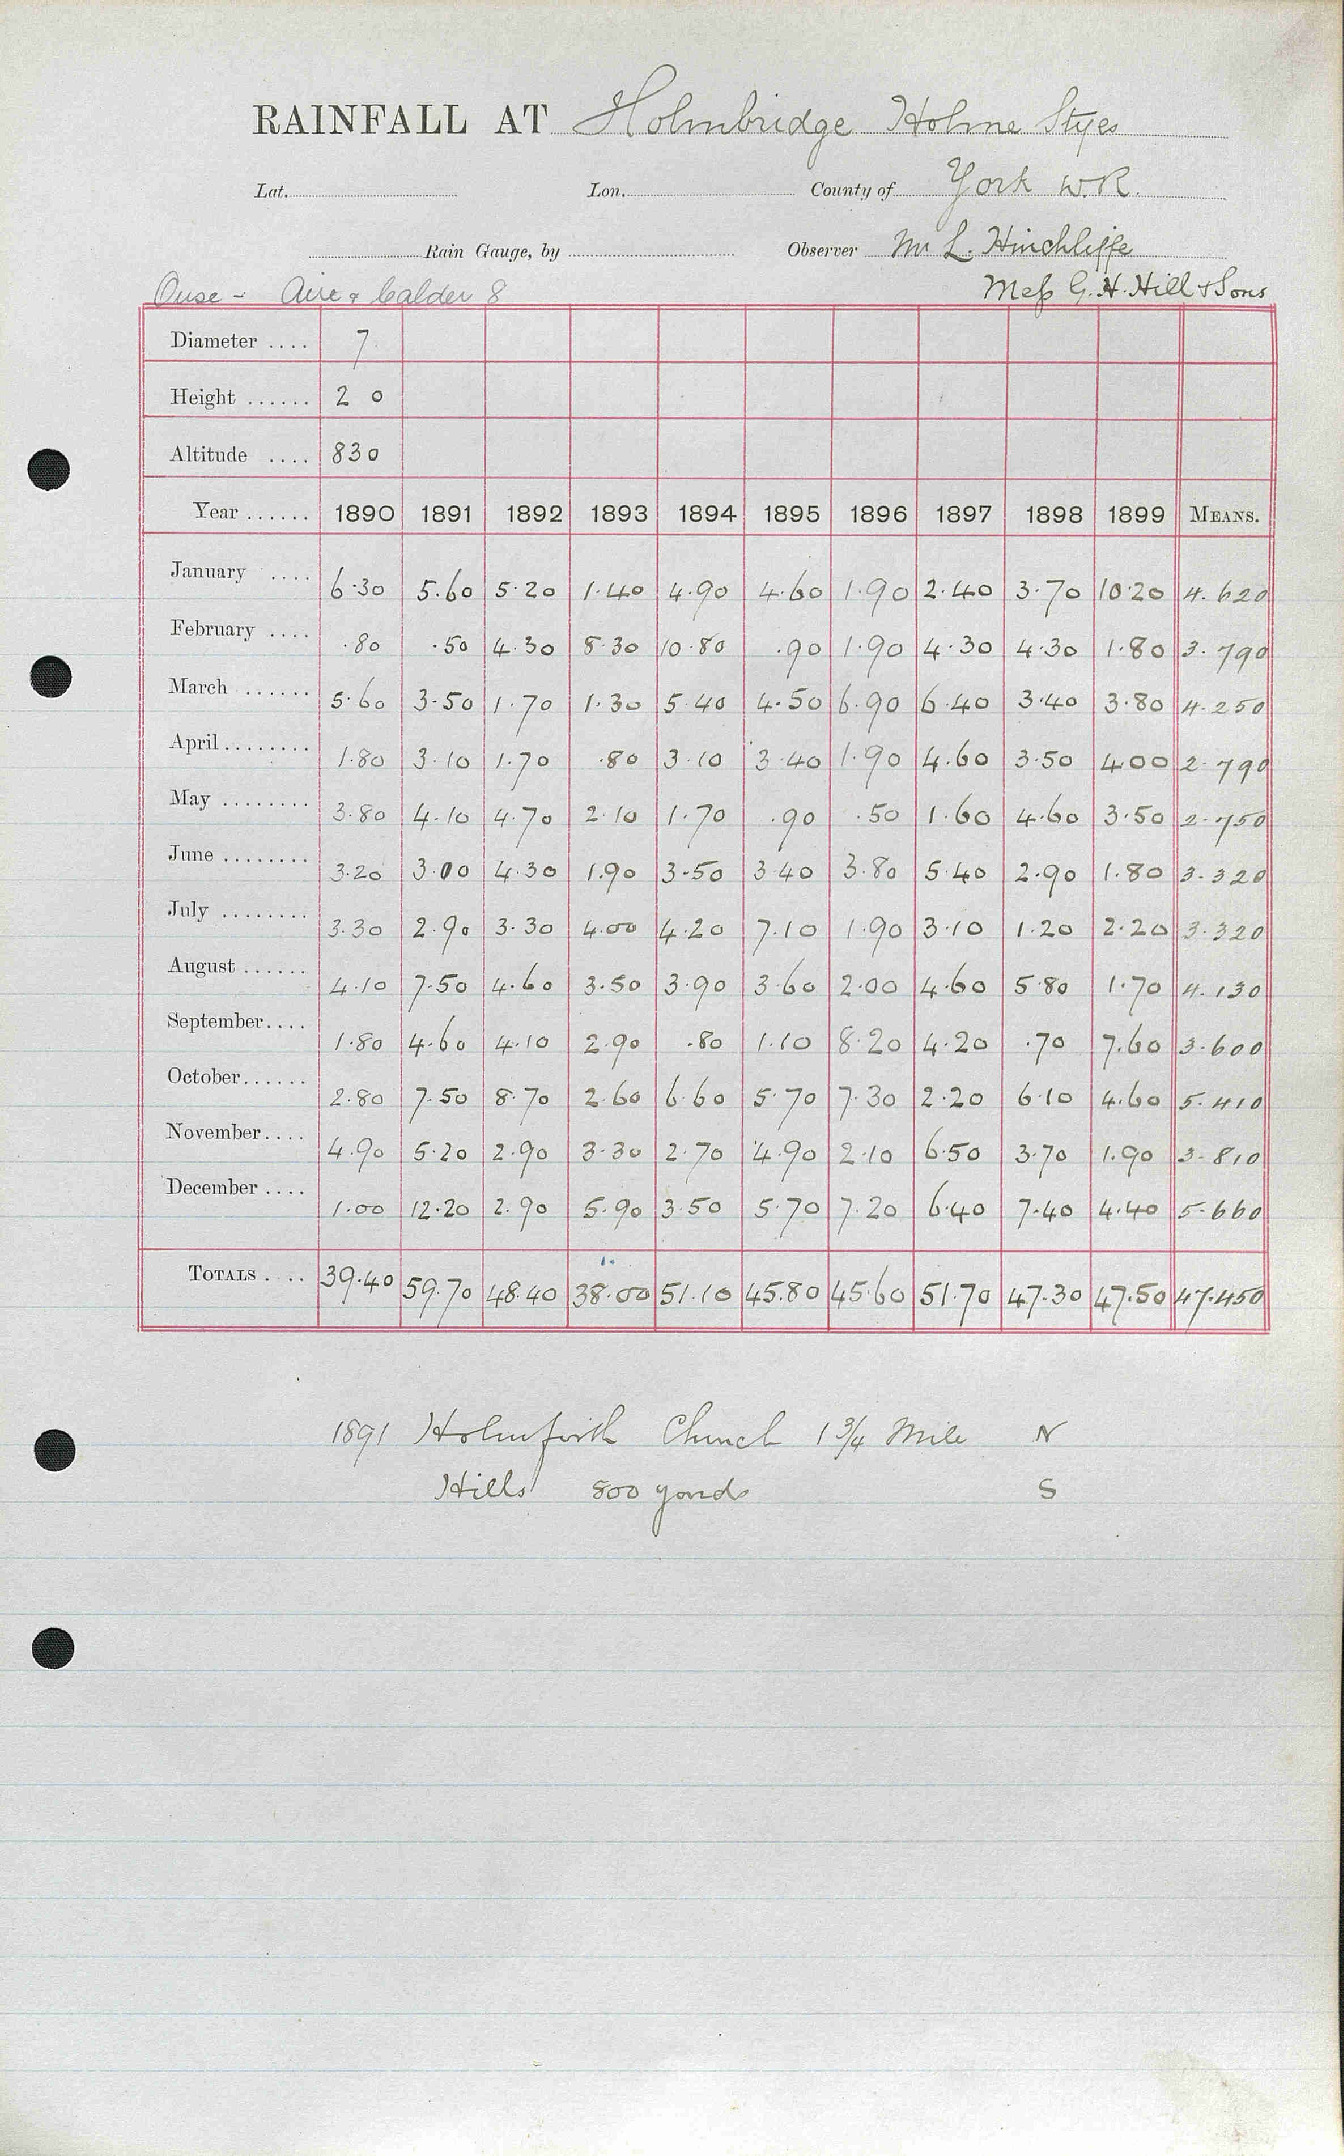 RAINFALL AT Holmbridge Holme Styes
Lat. Lon. County of York W.R.
Rain Gauge, by Observer Mr L. Hinchliffe
Ouse - Aire & Calder 8 Mess G. H. Hill & Sons
Diameter .... 7
Height ...... 2 0
Altitude .... 830
Year ...... 1890 1891 1892 1893 1894 1895 1896 1897 1898 1899 MEANS.
January .... 6.30 5.60 5.20 1.40 4.90 4.60 1.90 2.40 3.70 10.20 4.620
February .... .80 .50 4.30 8.30 10.80 .90 1.90 4.30 4.30 1.80 3.790
March ...... 5.60 3.50 1.70 1.30 5.40 4.50 6.90 6.40 3.40 3.80 4.250
April ........ 1.80 3.10 1.70 .80 3.10 3.40 1.90 4.60 3.50 4.00 2.790
May ........ 3.80 4.10 4.70 2.10 1.70 .90 .50 1.60 4.60 3.50 2.750
June ........ 3.20 3.00 4.30 1.90 3.50 3.40 3.80 5.40 2.90 1.80 3.320
July ........ 3.30 2.90 3.30 4.00 4.20 7.10 1.90 3.10 1.20 2.20 3.320
August ...... 4.10 7.50 4.60 3.50 3.90 3.60 2.00 4.60 5.80 1.70 4.130
September.... 1.80 4.60 4.10 2.90 .80 1.10 8.20 4.20 .70 7.60 3.600
October...... 2.80 7.50 8.70 2.60 6.60 5.70 7.30 2.20 6.10 4.60 5.410
November.... 4.90 5.20 2.90 3.30 2.70 4.90 2.10 6.50 3.70 1.90 3.810
December .... 1.00 12.20 2.90 5.90 3.50 5.70 7.20 6.40 7.40 4.40 5.660
TOTALS .... 39.40 59.70 48.40 38.00 51.10 45.80 45.60 51.70 47.30 47.50 47.450
1891 Holmfirth Church 1 3/4 Mile N
Hills 800 yards S